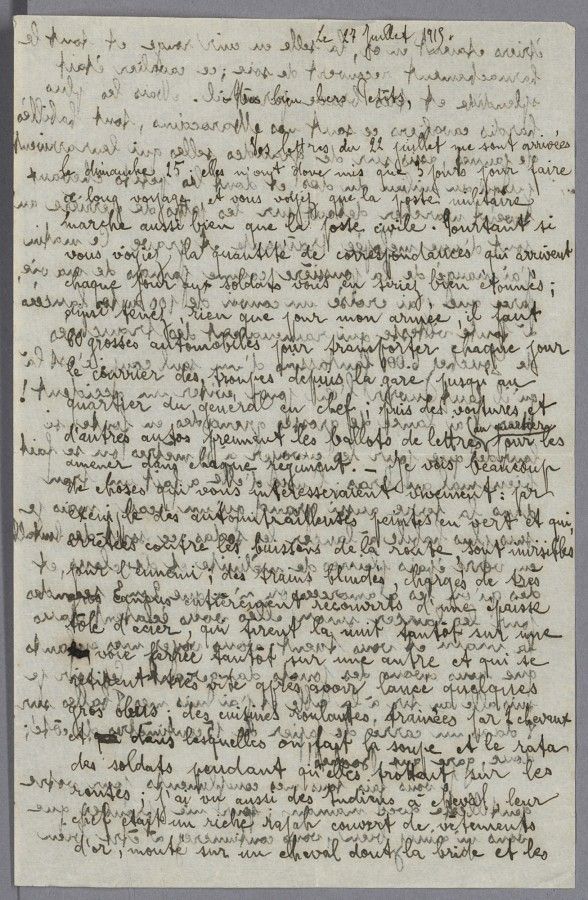 Le 27 juillet 1915.
Mes bien chers petits,
Vos lettres du 22 juillet me sont arrivées
le dimanche 25 ; elles n'ont donc mis que 3 jours pour faire
ce long voyage, et vous voyez que la poste militaire
marche aussi bien que la poste civile. Pourtant si
vous voyiez la quantité de correspondances qui arrivent
chaque jour aux soldats vous en seriez bien étonnés ;
ainsi tenez, rien que pour mon armée, il faut
80 grosses automobiles pour transporter chaque jour
le courrier des troupes depuis la gare jusqu'au
quartier du général en chef ; puis des voitures et
d'autres autos prennent les ballots de lettres au quartier pour les
amener dans chaque régiment. — Je vois beaucoup
de choses qui vous intéresseraient vivement : par
exemple des automitrailleuses peintes en vert et qui,
arrêtées contre les buissons de la route, sont invisibles
pour l'ennemi ; des trains blindés, chargés de très
canons entièrement recouverts d'une épaisse
tôle d'acier, qui tirent la nuit tantôt sur une
voie ferrée tantôt sur une autre et qui se
retirent très vite après avoir lancé quelques
gros obus ; des cuisines roulantes, traînées par 2 chevaux
et dans lesquelles on fait la soupe et le rata
des soldats pendant qu'elles trottent sur les
routes ; j'ai vu aussi des Indiens à cheval, leur
chef était un riche rajah couvert de vêtements
d'or, monté sur un cheval dont la bride et les